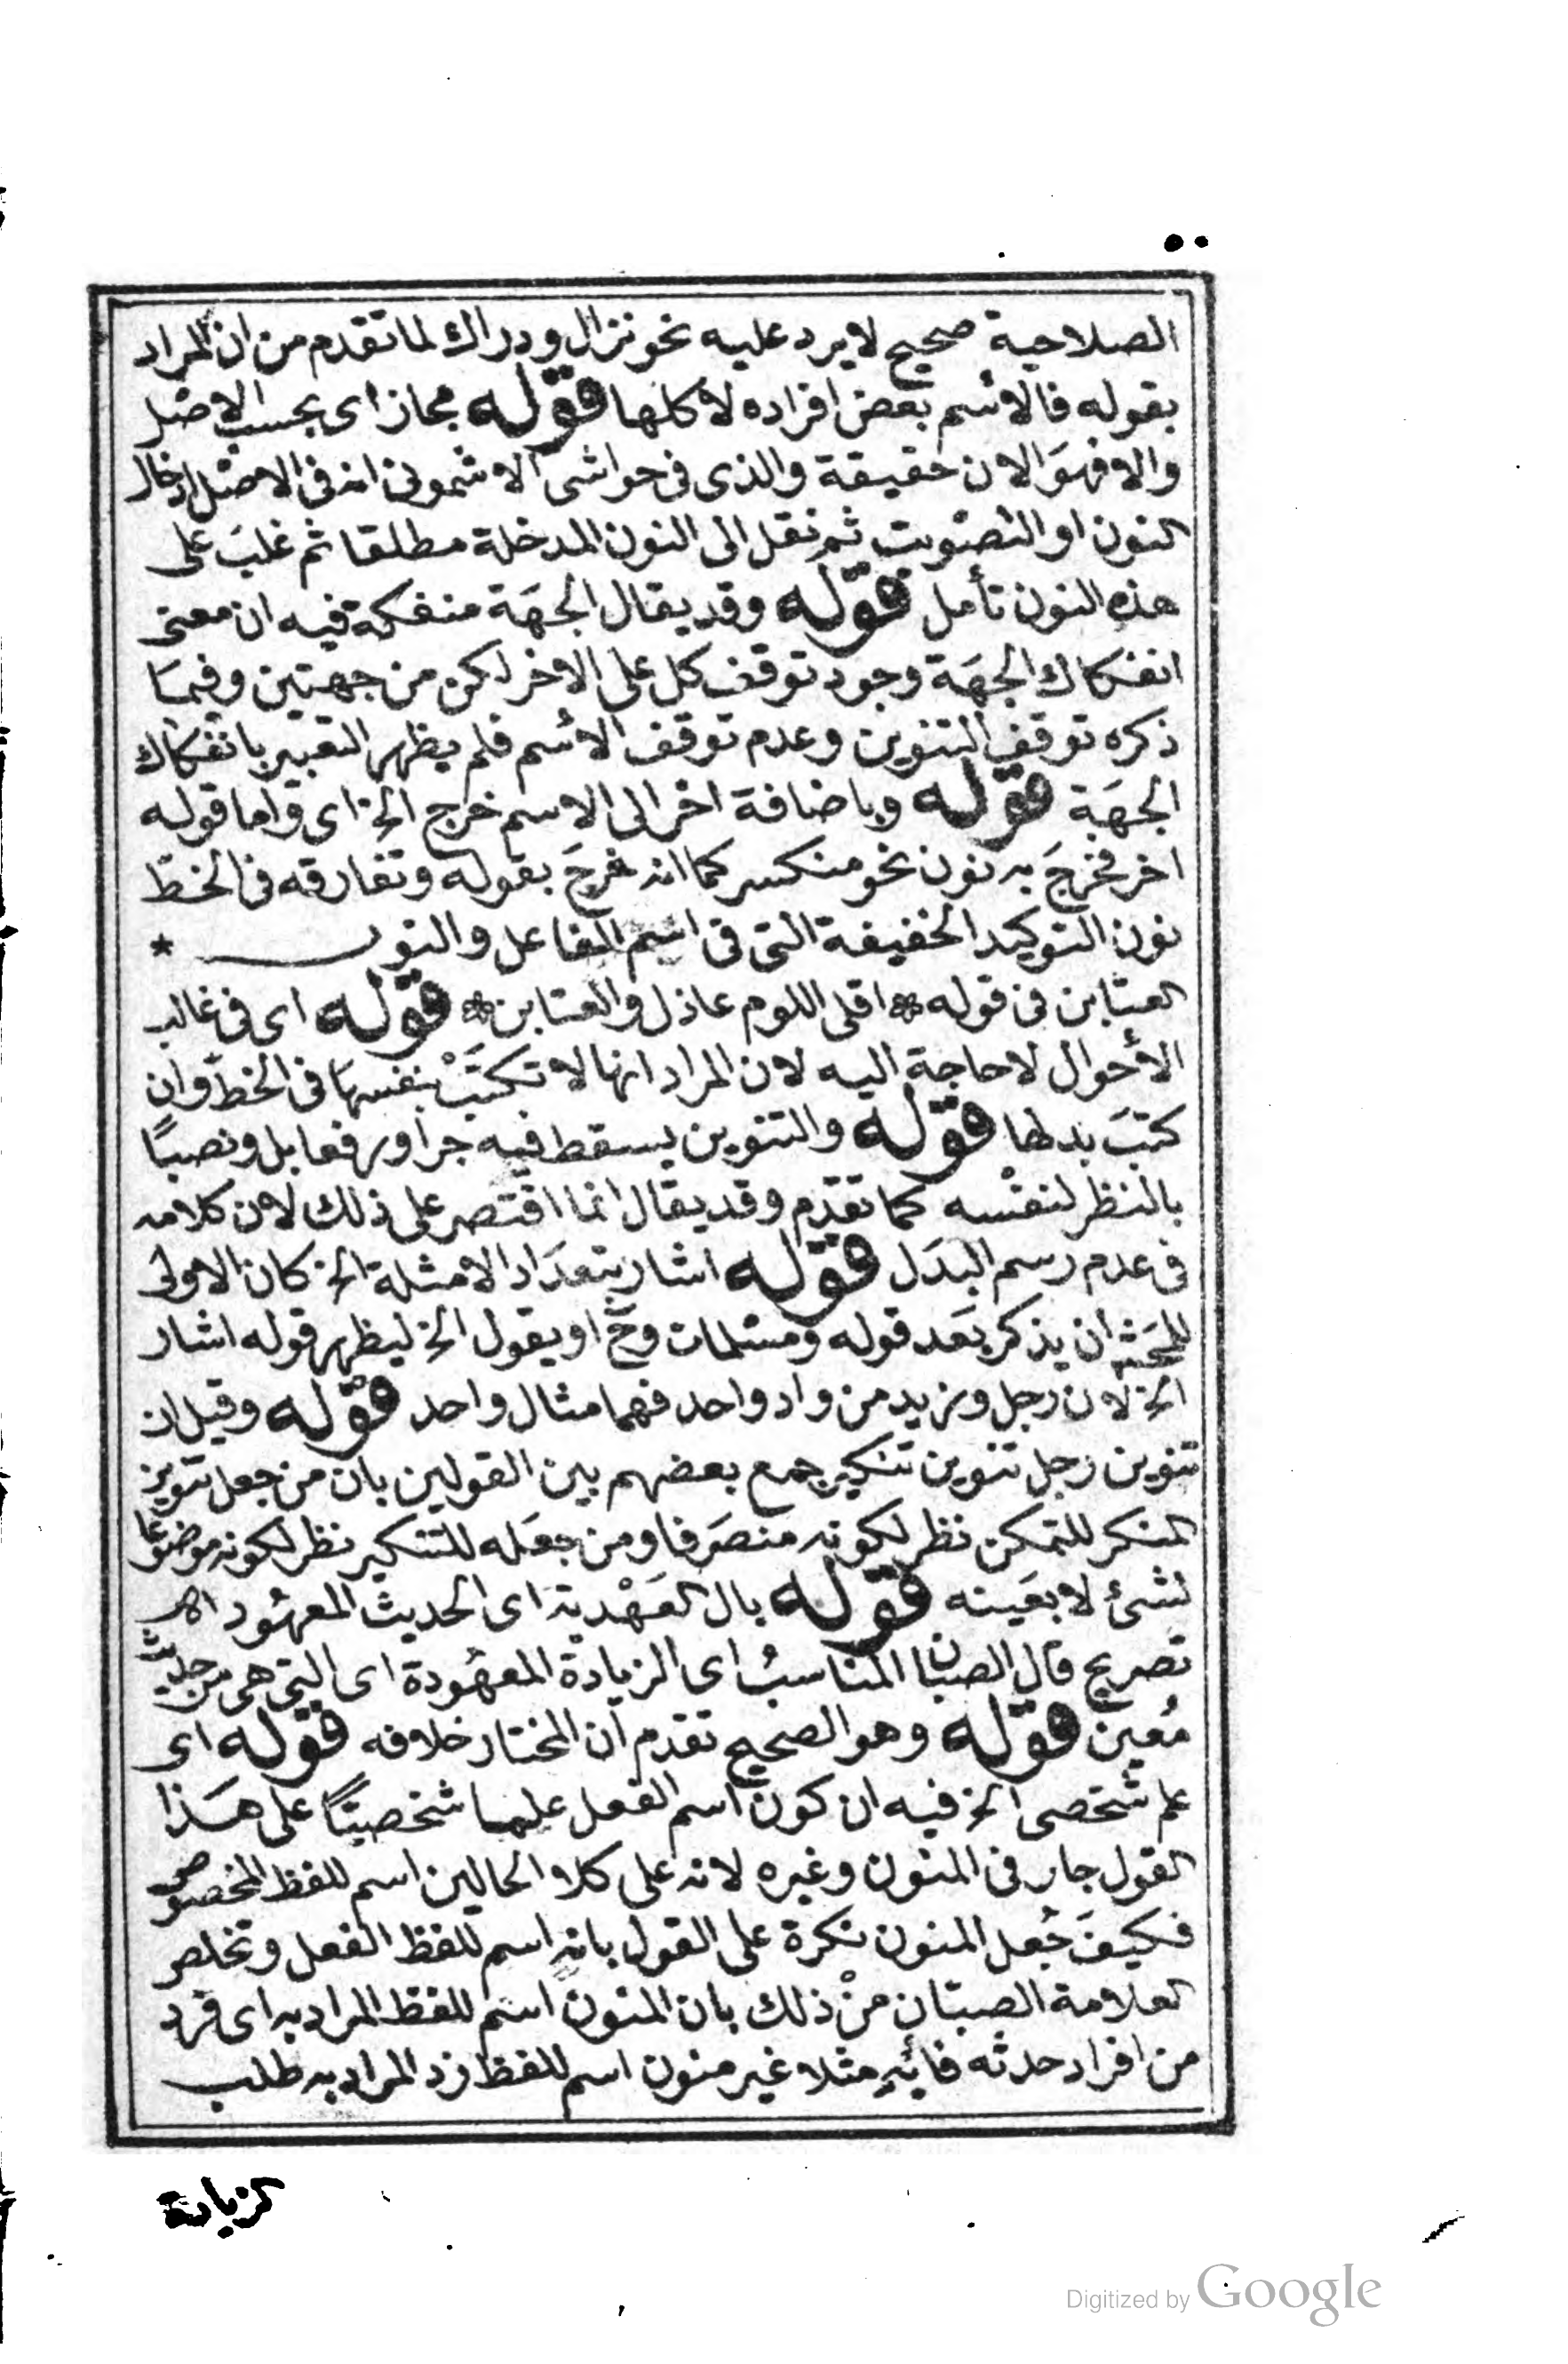 الصلاحية صحيح لا يرد عليه نحو نزال ودراك لما تقدم من ان المراد
بقوله فالاسم بعض افراده لا كلها قوله مجاز اى بحسب الاصل
والا فهو الان حقيقة والذى فى حواشى الاشمونى انه فى الاصل ادخال
النون او التصويت ثم نقل الى النون المدخلة مطلقا ثم غلب على
هذه النون تأمل قوله وقد يقال الجهة منفكة فيه ان معنى
انفكاك الجهة وجود توقف كل على الاخر لكن من جهتين وفيما
ذكره توقف التنوين وعدم توقف الاسم فلم يظهر التعبير بانفكاك
الجهة قوله وباضافة اخر الى الاسم خرج الخ اى واما قوله
اخر فخرج به نون نحو منكسر كما انه خرج بقوله وتفارقه فى الخط
نون التوكيد الخفيفة التى فى اسم الفاعل والنون *
العتابن فى قوله * اقلى اللوم عاذل والعتابن * قوله اى فى غالب
الأحوال لا حاجة اليه لان المراد انها لا تكتب بنفسها فى الخط وان
كتب بدلها قوله والتنوين يسقط فيه جرا ورفعا بل ونصبًا
بالنظر لنفسه كما تقدم وقد يقال انما اقتصر على ذلك لان كلامه
فى عدم رسم البدل قوله اشار بتعداد الامثلة الخ كان الاولى
للمحشى ان يذكر بعد قوله ومسلمات وح او يقول الخ ليظهر قوله اشار
الخ لان رجل وزيد من واد واحد فهما مثال واحد قوله وقيل ان
تنوين رجل تنوين تنكير جمع بعضهم بين القولين بان من جعل تنوين
المنكر للتمكن نظر لكونه منصرفا ومن جعله للتنكير نظر لكونه موضوعا
لشئ لا بعينه قوله بال العهدية اى الحديث المعهود اهـ
تصريح قال الصبان المناسبُ اى الزيادة المعهودة اى التى هى من حديث
مُعين قوله وهو الصحيح تقدم ان المختار خلافه قوله اى
علم شخصى الخ فيه ان كون اسم الفعل علما شخصيًّا على هذا
القول جار فى المنون وغيره لانه على كلا الحالين اسم للفظ المخصوص
فكيف جُعل المنون نكرة على القول بانه اسم للفظ الفعل وتخلص
العلامة الصبان من ذلك بان المنون اسم للفظ المراد به اى فرد
من افراد حدثه فايهِ مثلا غير منون اسم للفظ زد المراد به طلب
الزيادة
Digitized by Google